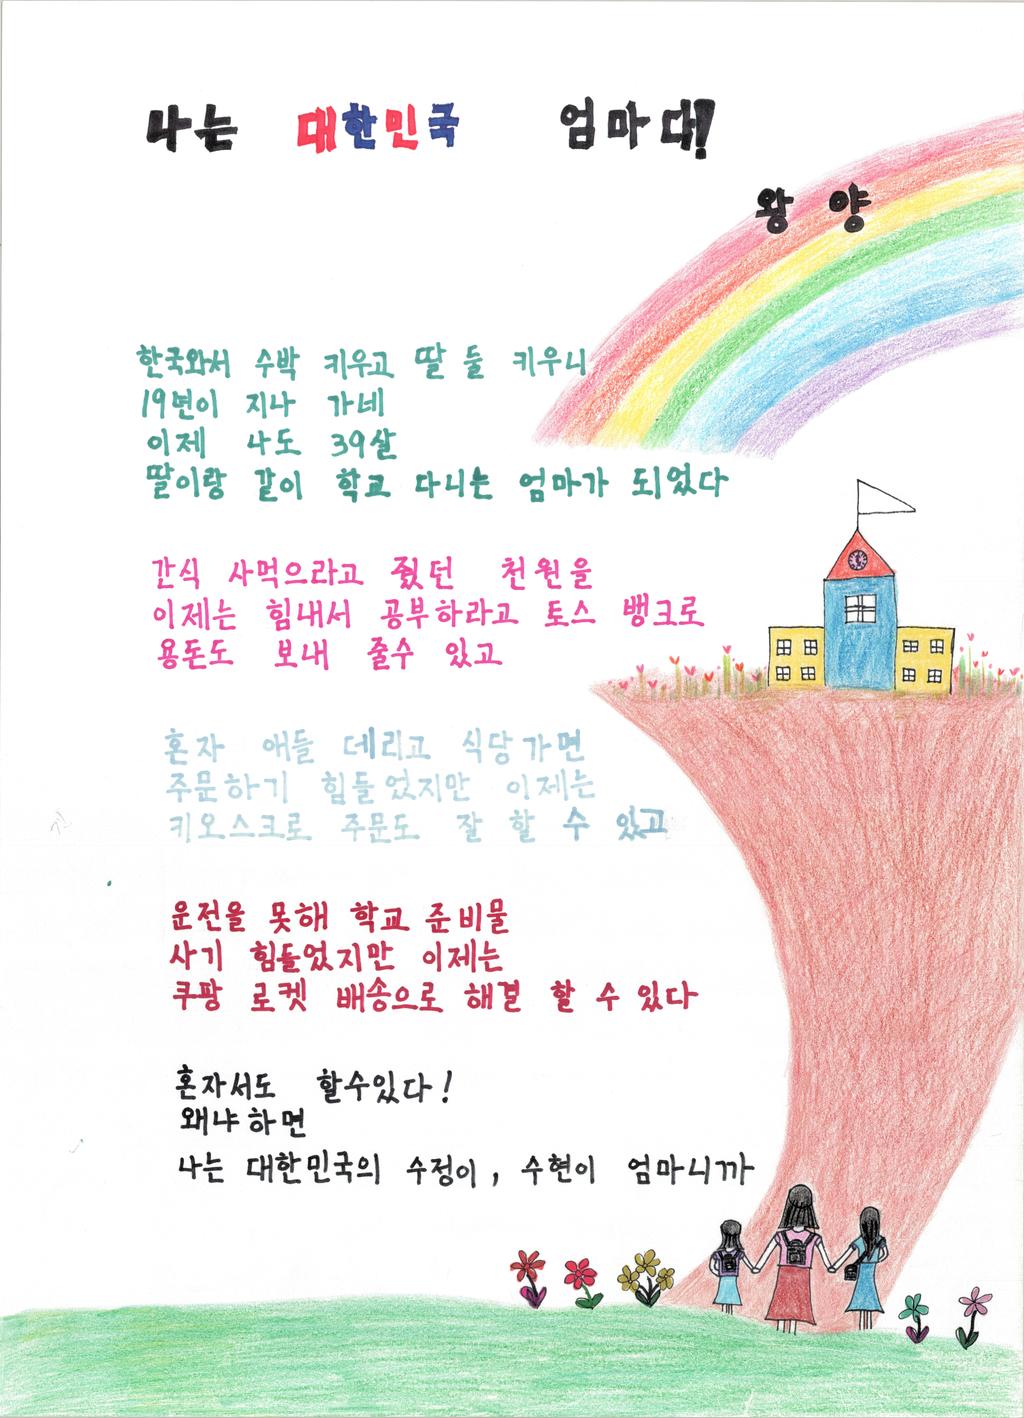 나는 대한민국 엄마다!
왕 양
한국와서 수박 키우고 딸 둘 키우니
19년이 지나 가네
이제 나도 39살
딸이랑 같이 학교 다니는 엄마가 되었다
간식 사먹으라고 줬던 천원을
이제는 힘내서 공부하라고 토스 뱅크로
용돈도 보내 줄수 있고
혼자 애들 데리고 식당가면
주문하기 힘들었지만 이제는
키오스크로 주문도 잘 할 수 있고
운전을 못해 학교 준비물
사기 힘들었지만 이제는
쿠팡 로켓 배송으로 해결 할 수 있다
혼자서도 할수있다!
왜냐하면
나는 대한민국의 수정이, 수현이 엄마니까